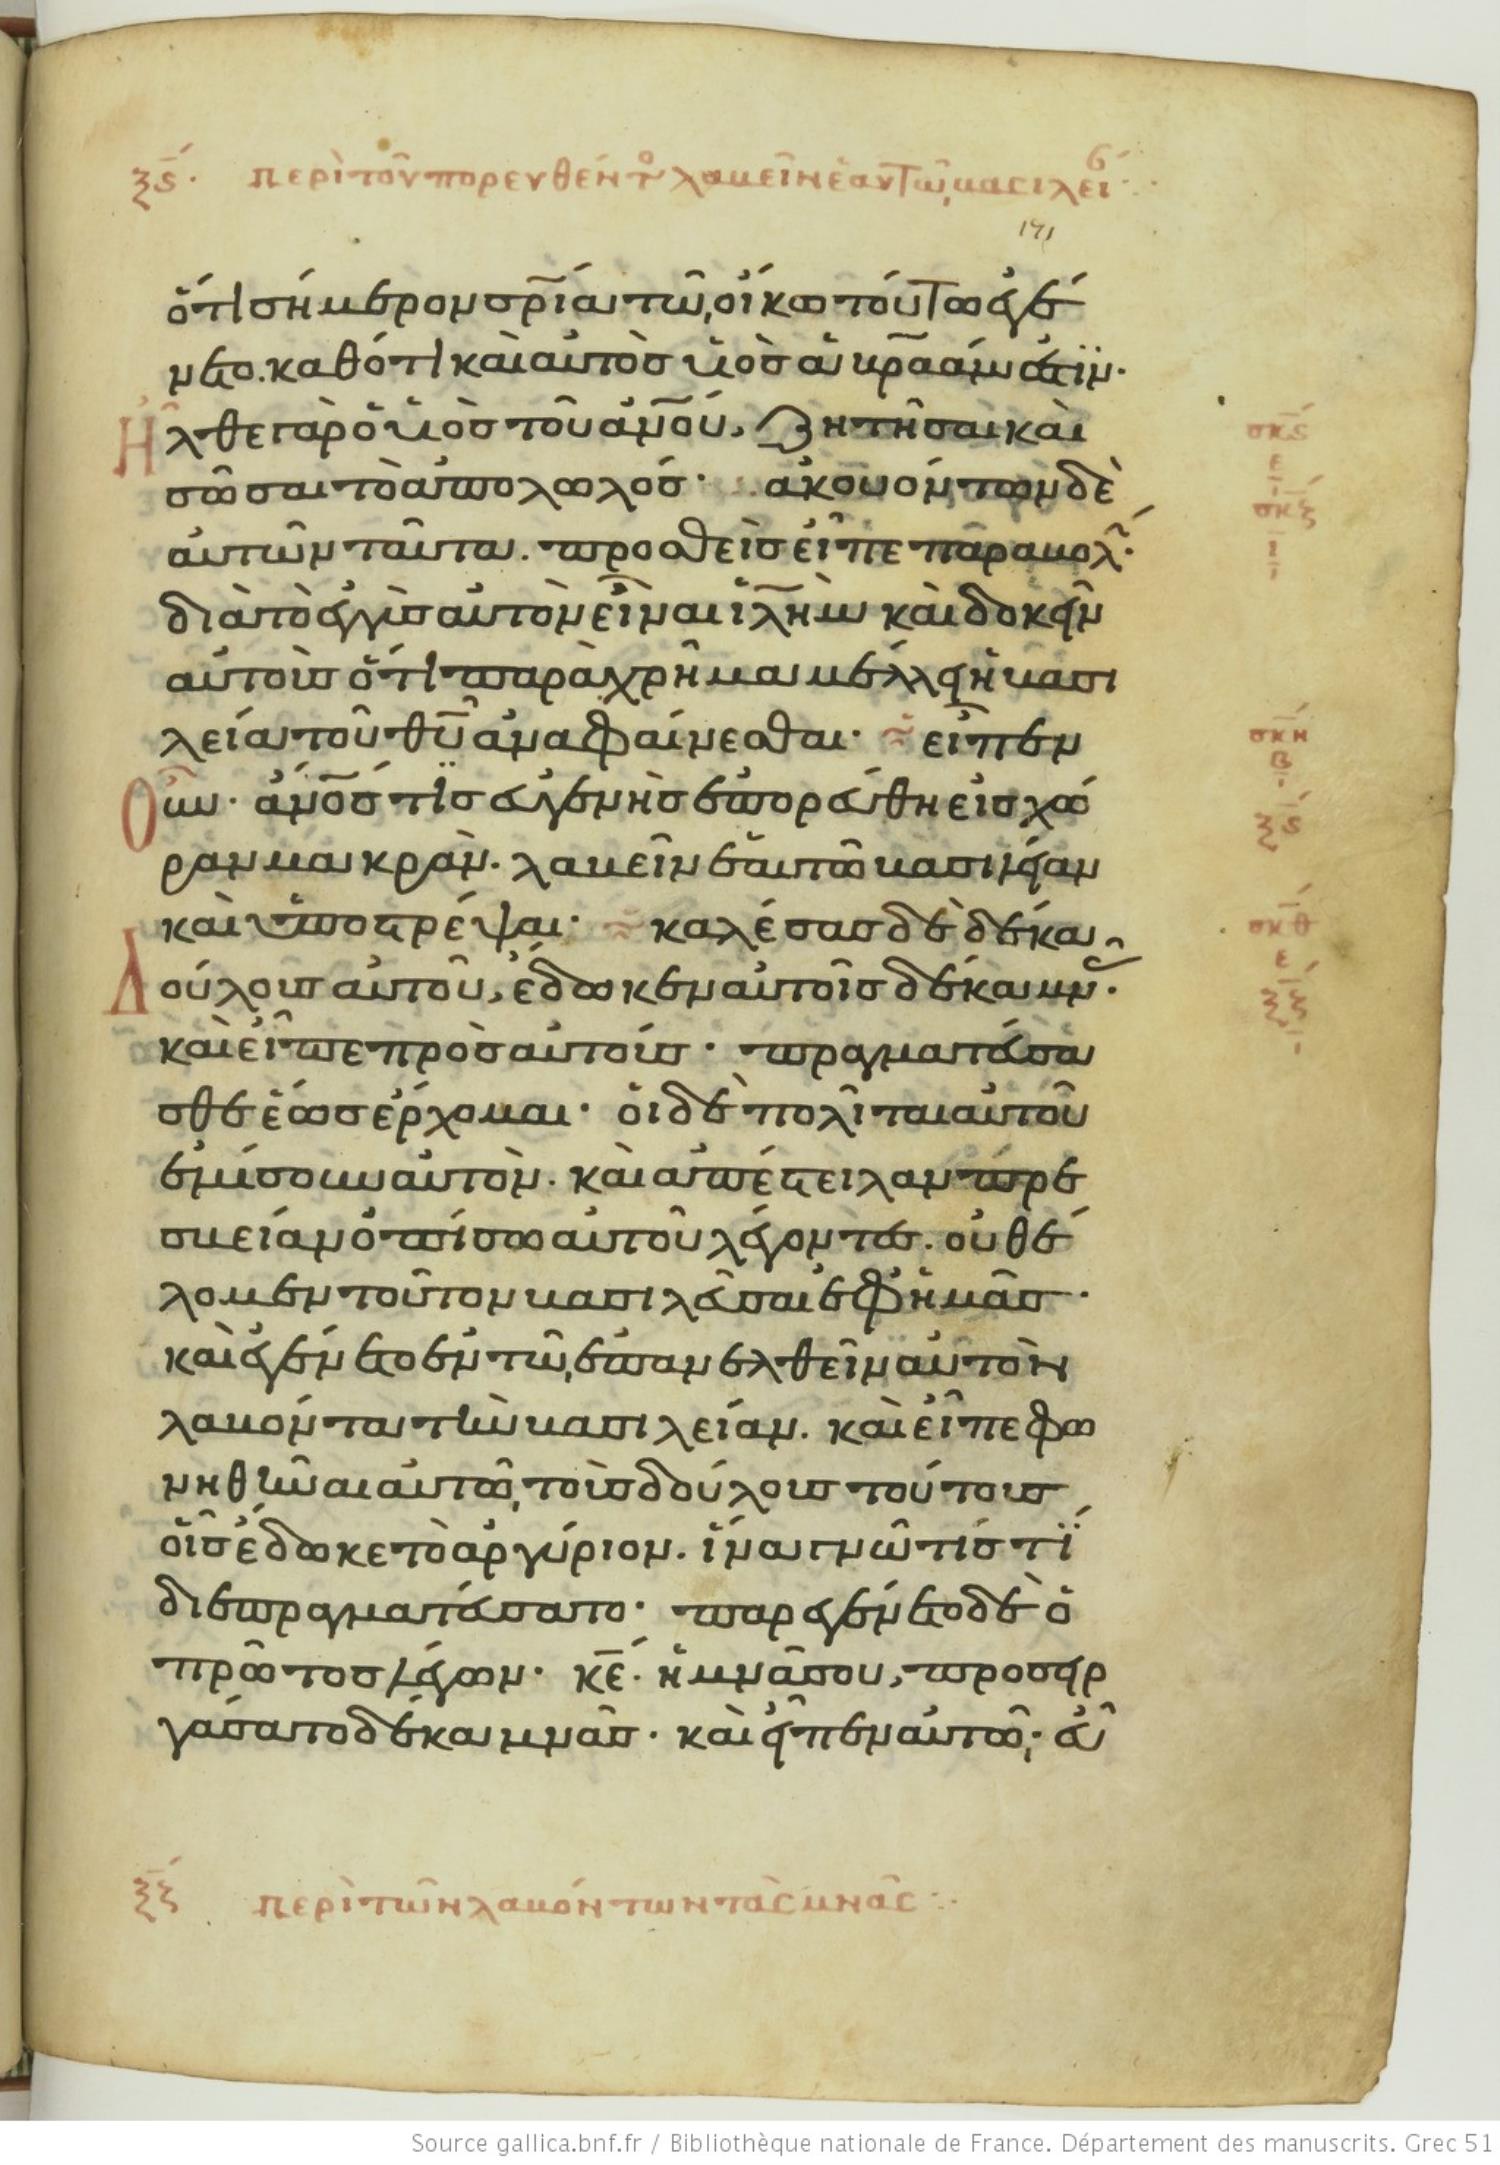 ξϛ· περὶ τοῦ πορευθέντο λαβεῖν ἑαυτῶ, βασιλεί
191
ὅτι σήμερον σρία τῶ, οἴκω τούτω ἐγέ
νετο. καθότι καὶ αὐτὸσ υἱὸσ ἀβρααάμ ἐστϊν·
Ἦλθε γὰρ ὁ υἱὸσ τοῦ ἀνου, ζητῆσαι καὶ
σῶσαι τὸ ἀπολωλόσ· ἀκουόντων δὲ
αὐτῶν ταῦτα. προσθεὶσ εἶπε παραβολ·
διὰ τὸ ἐγγὺσ αὐτὸν εἶναι ιλημ καὶ δοκεῖν
αὐτοὺσ ὅτι παραχρῆμα μέλλει ἡ βασι
λεία τοῦ θυ ἀναφαίνεσθαι· εἶπεν
Οὖν· ἀνοσ τίσ εὐγενὴσ ἐπορεύθη εἰσ χώ
ραν μακρὰν. λαβεῖν ἑαυτῶ βασιλείαν
καὶ ὑποστρέψαι· καλέσασ δὲ δέκα
Δούλουσ αὐτοῦ, ἔδωκεν αὐτοῖσ δέκα μν·
καὶ εἶπε πρὸσ αὐτούσ· πραγματεύσα
σθε ἕωσ ἔρχομαι· οἱ δὲ πολῖται αὐτοῦ
ἐμίσουν αὐτὸν. καὶ ἀπέστειλαν πρε
σβείαν ὀπίσω αὐτοῦ λέγοντεσ. οὐ θέ
λομεν τοῦτον βασιλεῦσαι ἐφ ἡμᾶσ·
καὶ ἐγένετο ἐν τῶ, ἐπανελθεῖν αὐτὸν
λαβόντα τὴν βασιλείαν. καὶ εἶπε φω
νηθῆναι αὐτῶ, τοὺσ δούλουσ τούτουσ
οἷσ ἔδωκε τὸ ἀργύριον. ἵνα γνῶ τίσ τϊ
διεπραγματεύσατο· παρεγένετο δὲ ὁ
πρῶτοσ λέγων· κε· ἡ μνᾶ σου, προσειρ
γάσατο δέκα μνᾶσ· καὶ εἶπεν αὐτῶ,· εὖ
ξζ περὶ τῶν λαβόντων τὰς μνᾶς
σκϛ
ε
σκζ
ι
σκη
β
ξϛ
σκθ
ε
ξζ
Source gallica.bnf.fr / Bibliothèque nationale de France. Département des manuscrits. Grec 51